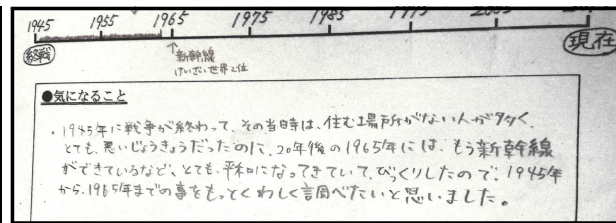 1945 1955 1965 1975 1985 1995 2005
終戦
↑新幹線
けいざい世界2位
現在
●気になること
・1945年に戦争が終わって、その当時は、住む場所がない人が多く、
とても、悪いじょうきょうだったのに、20年後の1965年には、もう新幹線
ができているなど、とても平和になってきていて、びっくりしたので、1945年
から、1965年までの事をもっとくわしく調べたいと思いました。